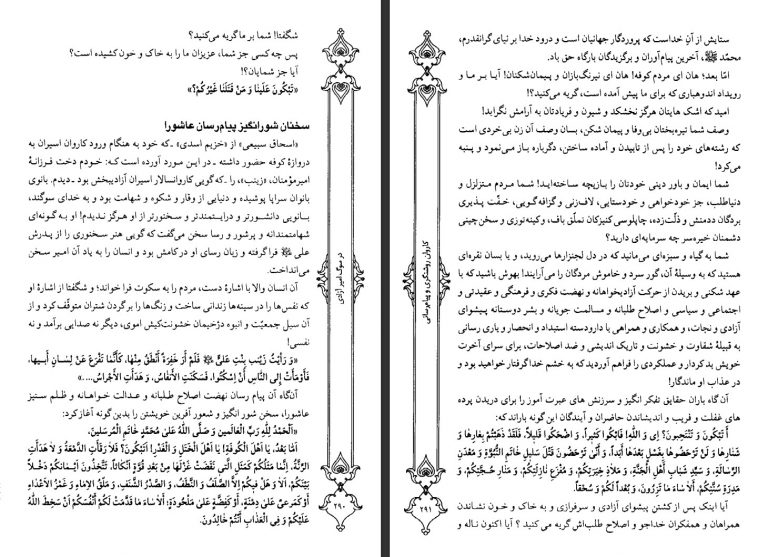 شگفتا! شما بر ما گریه می‌کنید؟
پس چه کسی جز شما، عزیزان ما را به خاک و خون کشیده است؟
آیا جز شمایان؟!
«تَبْکُونَ عَلَیْنا وَ مَنْ قَتَلَنا غَیْرُکُمْ؟»
سخنان شورانگیز پیام‌رسان عاشورا!
«اسحاق سبیعی» از «خزیم اسدی» ـ که خود به هنگام ورود کاروان اسیران به
دروازهٔ کوفه حضور داشته ـ در این مورد آورده است که: خودم دخت فرزانهٔ
امیرمؤمنان، «زینب»، را ـ که گویی کاروانسالار اسیران آزادیبخش بود ـ دیدم. بانوی
بانوان سراپا پوشیده و دنیایی از وقار و شکوه و شهامت بود و به خدای سوگند،
بانویی دانشورتر و درایتمندتر و سخنورتر از او هرگز ندیدم! او به گونه‌ای
شهامتمندانه و پرشور و رسا سخن می‌گفت که گویی هنر سخنوری را از پدرش
علی ﷷ فراگرفته و زبان رسای او در کامش بود و انسان را به یاد آن امیر سخن
می‌انداخت.
آن انسان والا با اشارهٔ دست، مردم را به سکوت فرا خواند؛ و شگفتا! از اشارهٔ او
که نفس‌ها را در سینه‌ها زندانی ساخت و زنگ‌ها را بر گردن شتران متوقّف کرد و از
آن سیل جمعیّت و انبوه دژخیمان خشونت‌کیش اموی، دیگر نه صدایی برآمد و نه
نفسی!
«وَ رَأَیْتُ زَیْنَبَ بِنْتَ عَلِیٍّ فَلَمْ أَرَ خَفِرَةً أَنْطَقُ مِنْها، کَأَنَّما تَفْرَعُ عَنْ لِسانِ أَبیها،
فَأَوْمَأَتْ إِلَی النّاسِ أَنْ اِسْکُتُوا، فَسَکَنَتِ الأَنْفاسُ، وَ هَدَأَتِ الأَجْراسُ....»
آن‌گاه آن پیام رسان نهضت اصلاح طلبانه و عدالت خواهانه و ظلم ستیز
عاشورا، سخن شور انگیز و شعور آفرین خویشتن را بدین گونه آغاز کرد:
«اَلْحَمْدُ لِلّهِ رَبِّ الْعالَمینَ وَ صَلَّی اللّهُ عَلی مُحَمَّدٍ خاتَمِ الْمُرسَلینَ.
أَمّا بَعْدُ، یا أَهْلَ الْکُوفَةِ! یا أَهْلَ الْخَتْلِ وَ الْغَدْرِ! أَتَبْکُونَ؟ فَلا رَقَأَتِ الدَّمْعَةُ وَ لا هَدَأَتِ
الرَّنَّةُ. إِنَّما مَثَلُکُمْ کَمَثَلِ الَّتی نَقَضَتْ غَزْلَها مِنْ بَعْدِ قُوَّةٍ أَنْکاثاً، تَتَّخِذُونَ أَیْمانَکُمْ دَخَلاً
بَیْنَکُمْ، أَلا وَ هَلْ فیکُمْ إِلاَّ الصَّلَفُ وَ النَّطَفُ، وَ الصَّدْرُ الشَّنَفُ، وَ مَلَقُ الإِماءِ وَ غَمْزُ الأَعْداءِ
أَوْ کَمَرْعیً عَلی دِمْنَةٍ، أَوْ کَفِضَّةٍ عَلی مَلْحُودَةٍ؛ أَلا ساءَ ما قَدَّمَتْ لَکُمْ أَنْفُسُکُمْ أَنْ سَخِطَ اللّهُ
عَلَیْکُمْ وَ فِی الْعَذابِ أَنْتُمْ خالِدُونَ.
در سوگ امیر آزادی
۲۹۰
ستایش از آنِ خداست که پروردگار جهانیان است و درود خدا بر نیای گرانقدرم،
محمّد ﷺ، آخرین پیام‌آوران و برگزیدگان بارگاه حق باد.
امّا بعد؛ هان ای مردم کوفه! هان ای نیرنگ‌بازان و پیمان‌شکنان! آیا بر ما و
رویداد اندوهباری که برای ما پیش آمده است، گریه می‌کنید؟!
امید که اشک هایتان هرگز نخشکد و شیون و فریادتان به آرامش نگراید!
وصف شما تیره‌بختان بی‌وفا و پیمان شکن، بسان وصف آن زن بی‌خردی است
که رشته‌های خود را پس از تابیدن و آماده ساختن، دگرباره باز می‌نمود و پنبه
می‌کرد!
شما ایمان و باور دینی خودتان را بازیچه ساخته‌اید! شما مردم متزلزل و
دنیاطلب، جز خودخواهی و خودستایی، لاف‌زنی و گزافه‌گویی، خفّت پذیری
بردگان ددمنش و ذلّت‌زده، چاپلوسی کنیزکان تملّق باف، و کینه‌توزی و سخن‌چینی
دشمنان خیره‌سر چه سرمایه‌ای دارید؟
شما به گیاه و سبزه‌ای می‌مانید که در دل لجنزارها می‌روید، و یا بسان نقره‌ای
هستید که به وسیلهٔ آن، گور سرد و خاموش مردگان را می‌آرایند! بهوش باشید که با
عهد شکنی و بریدن از حرکت آزادیخواهانه و نهضت فکری و فرهنگی و عقیدتی و
اجتماعی و سیاسی و اصلاح طلبانه و مسالمت جویانه و بشر دوستانه پیشوای
آزادی و نجات، و همکاری و همراهی با داروسته استبداد و انحصار و یاری رسانی
به قبیلهٔ شقاوت و خشونت و تاریک اندیشی و ضد اصلاحات، برای سرای آخرت
خویش بد کردار و عملکردی را فراهم آوردید که به خشم خدا گرفتار خواهید بود و
در عذاب او ماندگار!
آن گاه باران حقایق تفکر انگیز و سرزنش های عبرت آموز را برای دریدن پرده
های غفلت و فریب و اندیشاندن حاضران و آیندگان این گونه باراند که:
أَ تَبْکُونَ وَ تَنْتَحِبُونَ؟ إی وَ اللّهِ! فَابْکُوا کَثیراً، وَ اضْحَکُوا قَلیلاً. فَلَقَدْ ذَهَبْتُمْ بِعارِها وَ
شَنارِها وَ لَنْ تَرْحَضُوها بِغَسْلٍ بَعْدَها أَبَداً، وَ أَنّی تَرْحَضُونَ قَتْلَ سَلیلِ خاتَمِ النُّبُوَّةِ وَ مَعْدِنِ
الرِّسالَةِ، وَ سَیِّدِ شَبابِ أَهْلِ الْجَنَّةِ، وَ مَلاذِ خِیَرَتِکُمْ، وَ مَفْزَعِ نازِلَتِکُمْ، وَ مَنارِ حُجَّتِکُمْ، وَ
مِدَرَةِ سُنَّتِکُمْ. أَلا ساءَ ما تَزِرُونَ، وَ بُعْداً لَکُمْ وَ سُحْقاً.
آیا اینک پس از کشتن پیشوای آزادی و سرفرازی و به خاک و خون نشاندن
همراهان و همفکران خداجو و اصلاح طلب‌اش گریه می کنید ؟ آیا اکنون ناله و
کاروان روشنگری و پیام‌رسانی
۲۹۱